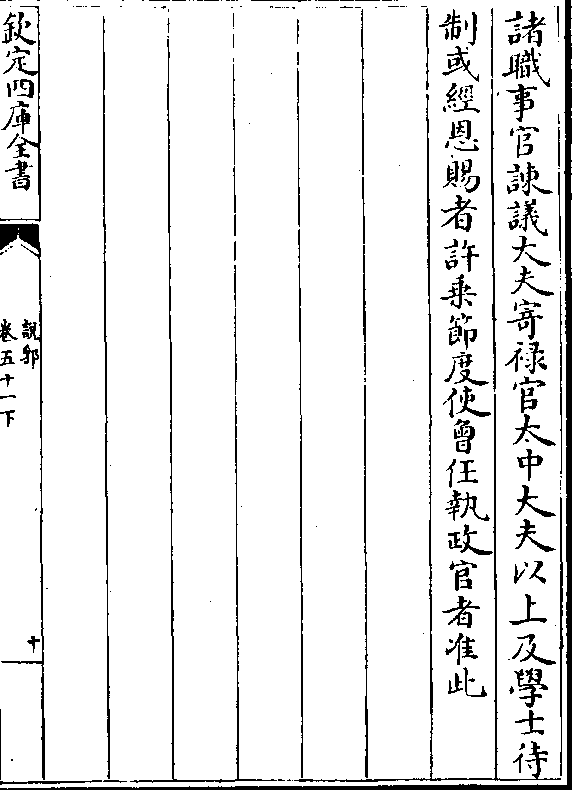 諸職事官諫議大夫寄祿官太中大夫以上及學士待
制或經恩賜者許乗節度使曾任執政官者准此
欽定四庫全書
說郛
卷五十一下
十